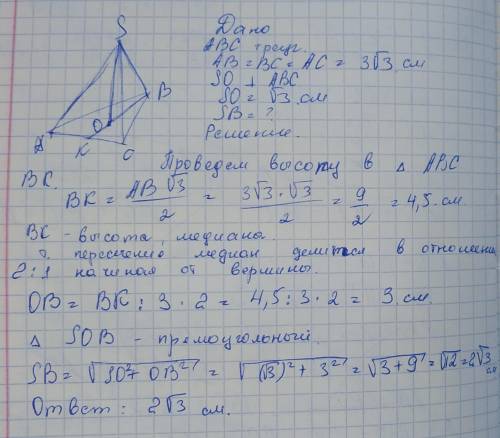 S
B
O
A
K
C
Дано
ABC треуг.
AB = BC = AC = 3√3 см
SO ⊥ ABC
SO = √3 см
SB = ?
Решение.
Проведем высоту в △ ABC
BK.
BK = AB√3/2 = 3√3·√3/2 = 9/2 = 4,5 см.
BK - высота, медиана.
т. пересечение медиан делится в отношении
2:1 начиная от вершины.
OB = BK : 3 · 2 = 4,5 : 3 · 2 = 3 см.
△ SOB - прямоугольный.
SB = √(SO² + OB²) = √((√3)² + 3²) = √(3+9) = √12 = 2√3 см
Ответ: 2√3 см.